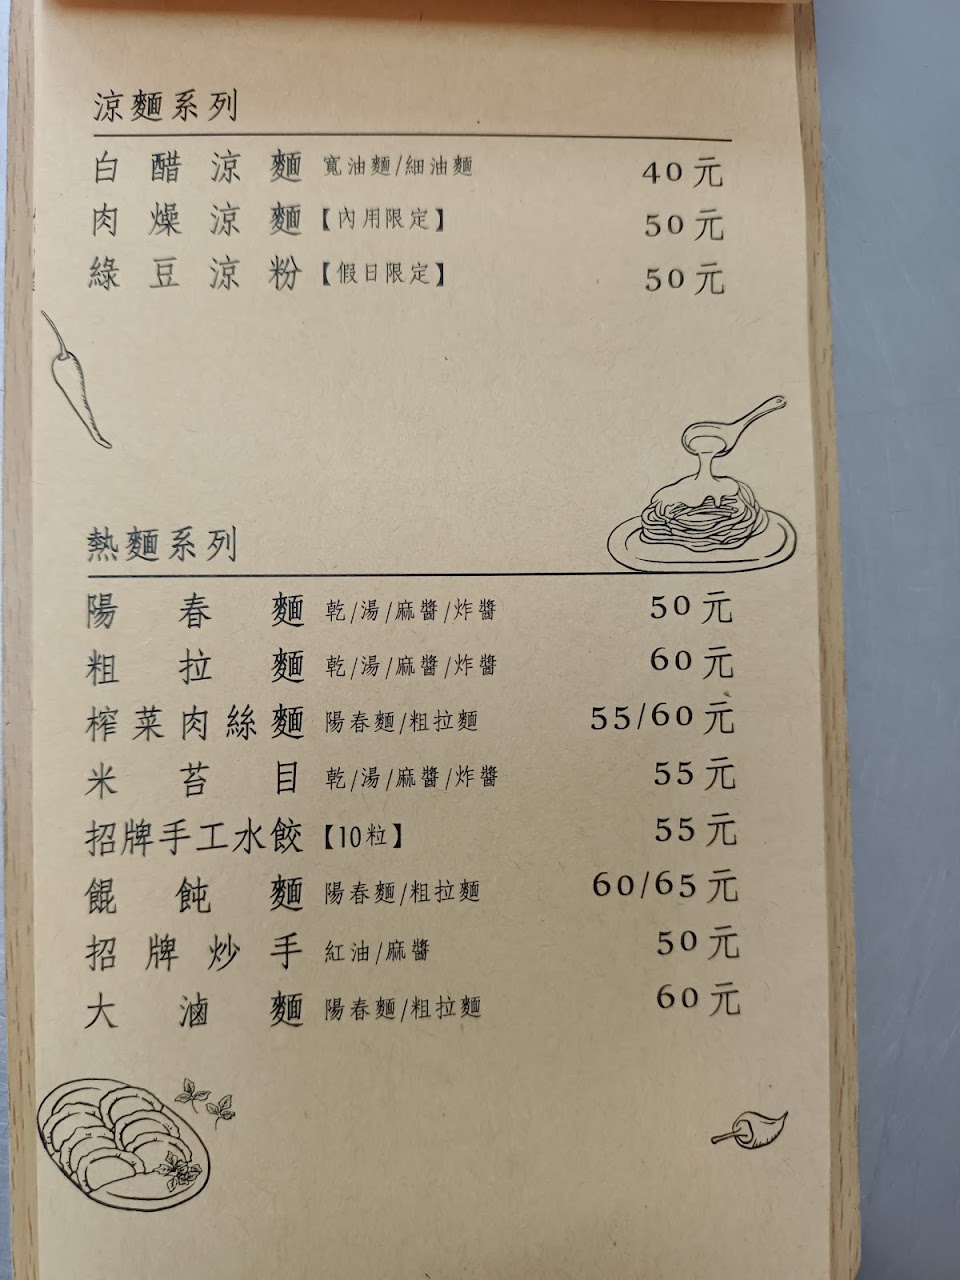 涼麵系列
白醋涼麵 寬油麵/細油麵 40元
肉燥涼麵【內用限定】 50元
綠豆涼粉【假日限定】 50元
熱麵系列
陽春麵 乾/湯/麻醬/炸醬 50元
粗拉麵 乾/湯/麻醬/炸醬 60元
榨菜肉絲麵 陽春麵/粗拉麵 55/60元
米苔目 乾/湯/麻醬/炸醬 55元
招牌手工水餃【10粒】 55元
餛飩麵 陽春麵/粗拉麵 60/65元
招牌炒手 紅油/麻醬 50元
大滷麵 陽春麵/粗拉麵 60元